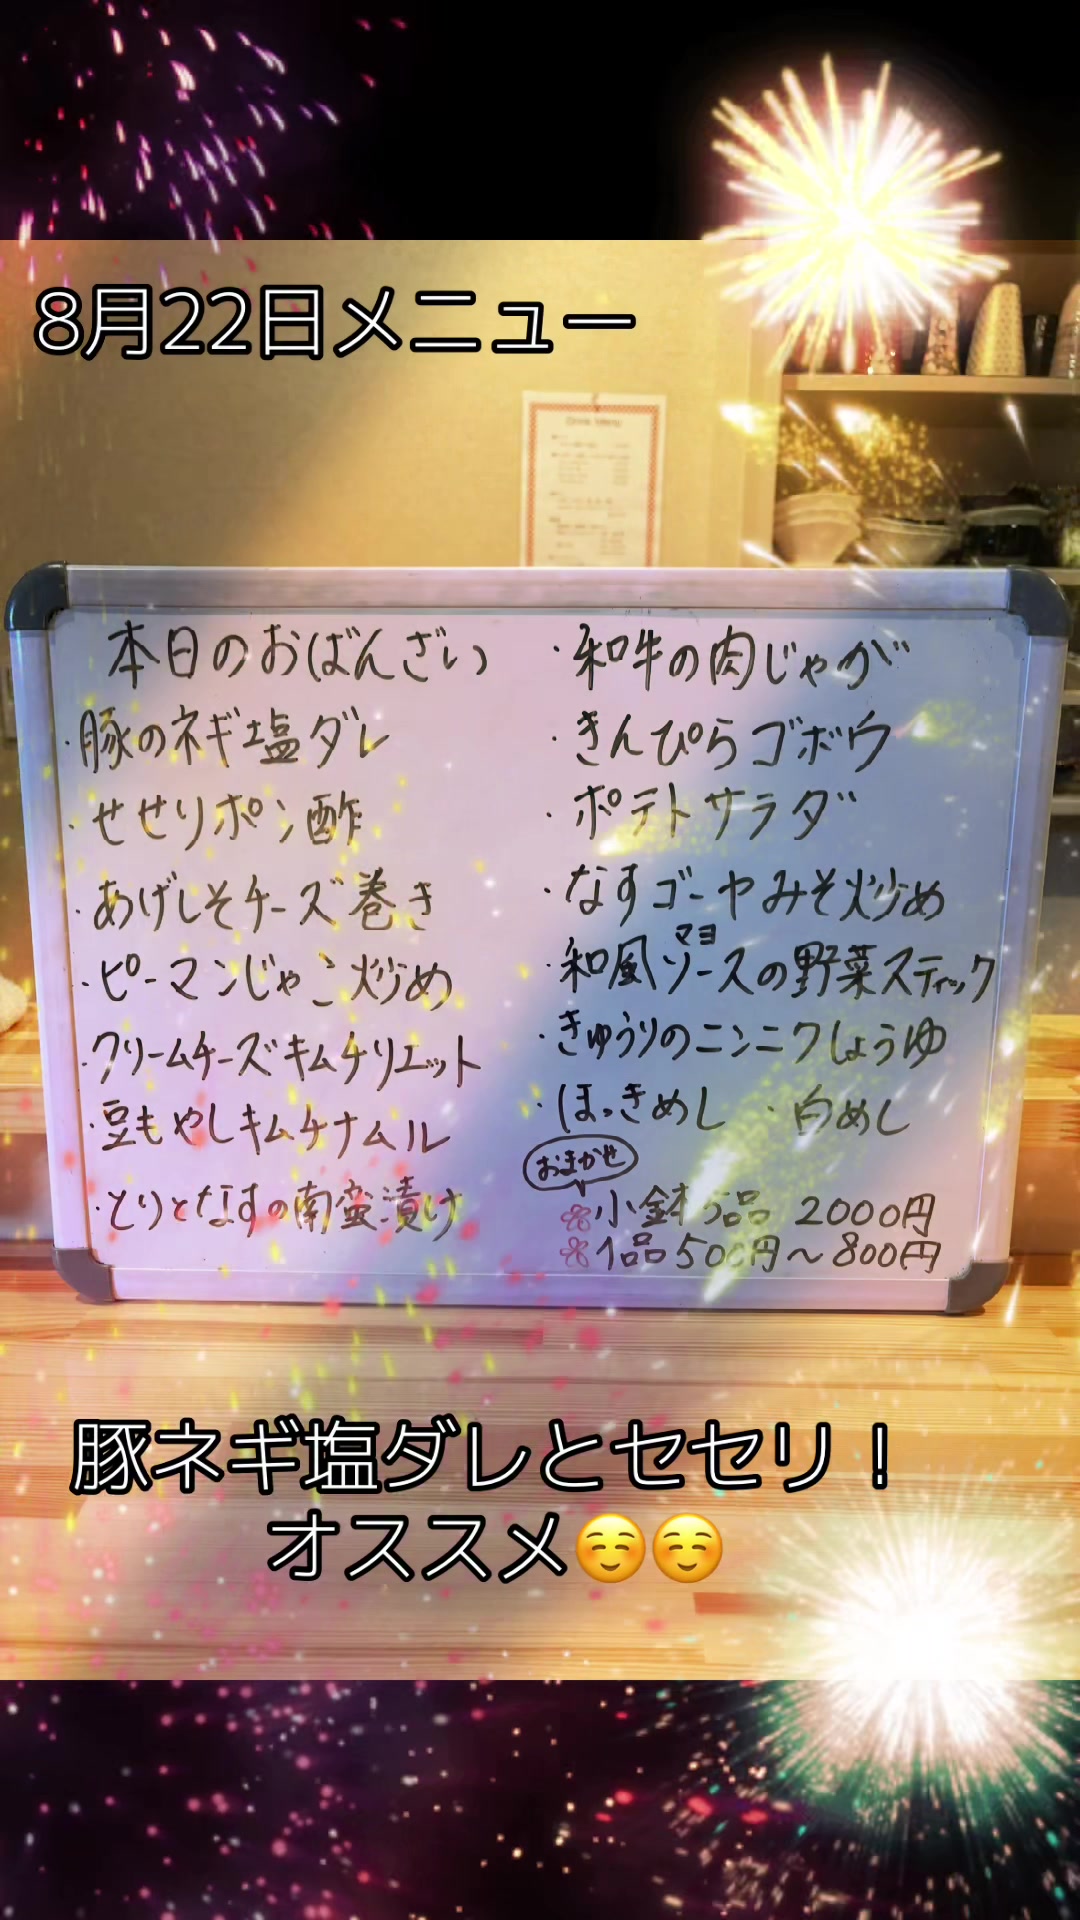 8月22日メニュー
Drink Menu
本日のおばんざい
・豚のネギ塩ダレ
・せせりポン酢
・あげしそチーズ巻き
・ピーマンじゃこ炒め
・クリームチーズキムチリエット
・豆もやしキムチナムル
・とりとなすの南蛮漬け
・和牛の肉じゃが
・きんぴらゴボウ
・ポテトサラダ
・なすゴーヤみそ炒め
マヨ
・和風ソースの野菜スティック
・きゅうりのニンニクしょうゆ
・ほっきめし ・白めし
おまかせ
小鉢5品 2000円
1品500円〜800円
豚ネギ塩ダレとセセリ！
オススメ☺️☺️